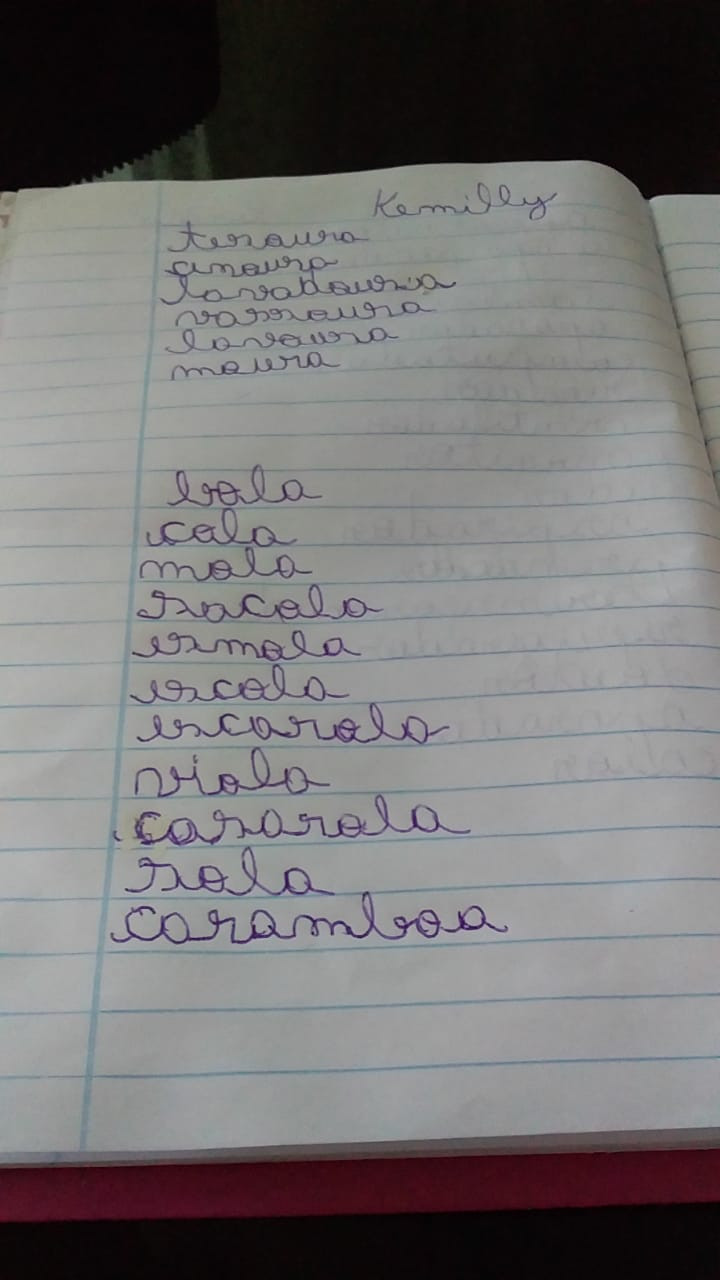 Kemilly
tesoura
cenoura
lavadoura
vassoura
lavoura
moura
bola
cola
mola
sacola
esmola
escola
escarola
viola
casarola
sola
carambola